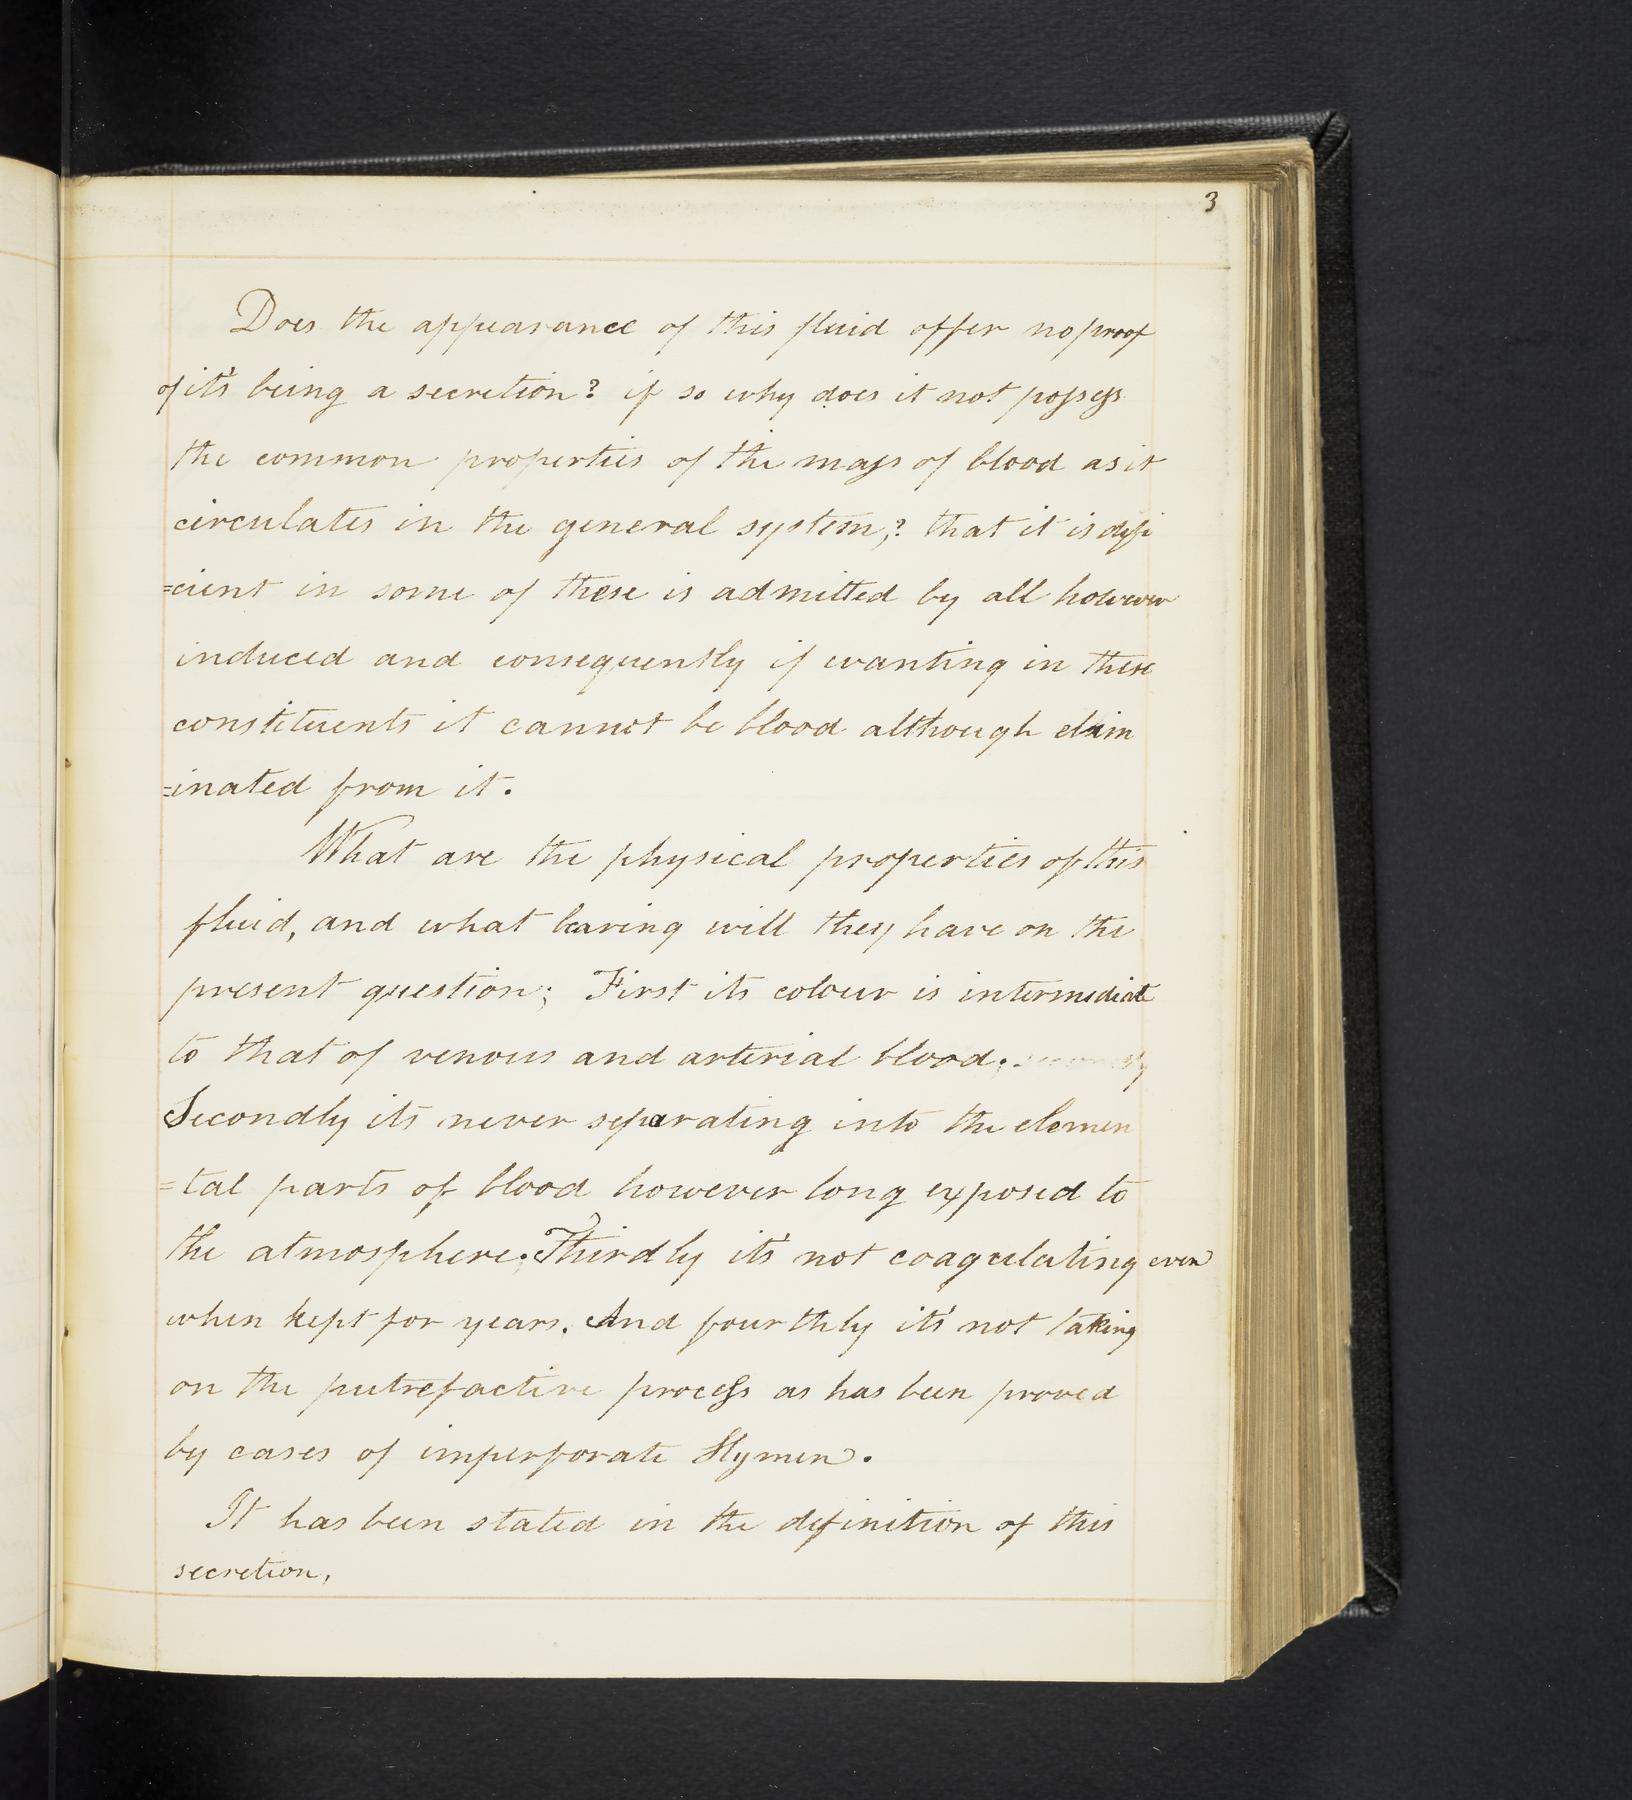 3
Does the appearance of this fluid offer no proof
of it's being a secretion? if so why does it not possess
the common properties of the mass of blood as it
circulates in the general system,? that it is defi
=cient in some of these is admitted by all however
induced and consequently if wanting in these
constituents it cannot be blood although elim
=inated from it.
What are the physical properties of this
fluid, and what bearing will they have on the
present question; First its colour is intermediate
to that of venous and arterial blood; secondly
Secondly its never separating into the elemen
=tal parts of blood however long exposed to
the atmosphere. Thirdly it's not coagulating even
when kept for years. And fourthly it's not taking
on the putrefactive process as has been proved
by cases of imperforate Hymen.
It has been stated in the definition of this
secretion,